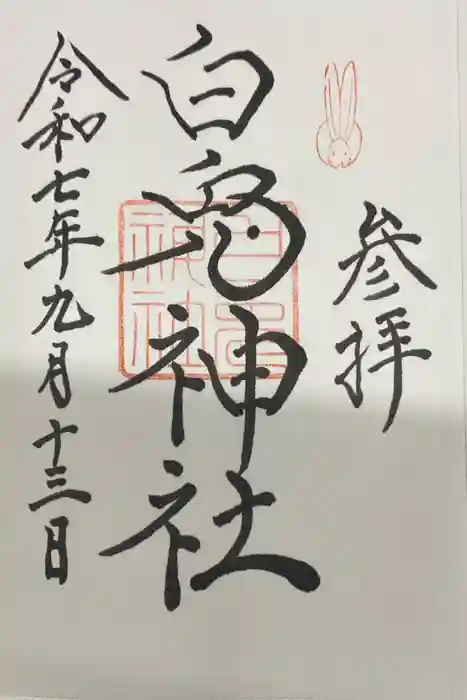 参拝
白兎神社
令和七年九月十三日